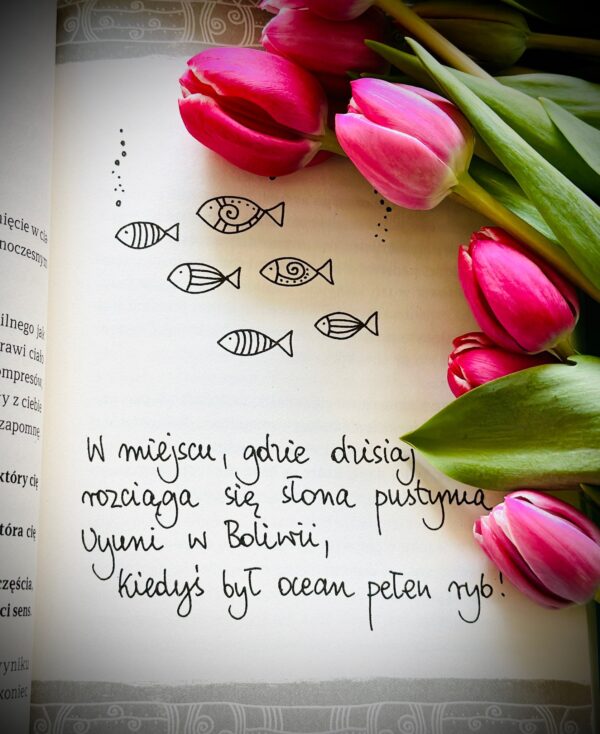 nięcie w cia
noczesnym
ilnego jak
rawi ciało
ompresów
y z ciebie
zapomnę
który cię
tóra cię
częścia,
ci sens.
wyniku
koniec
W miejscu, gdzie dzisiaj
rozciąga się słona pustynia
Uyuni w Boliwii,
kiedyś był ocean pełen ryb!